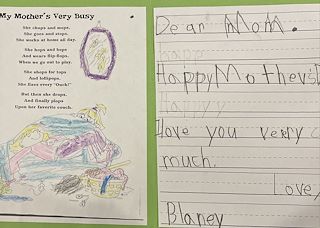 My Mother's Very Busy
She chops and mops,
She goes and stops,
She works at home all day.
She hops and bops
And wears flip-flops,
When we go out to play.
She shops for tops
And lollipops,
She fixes every "Ouch!"
But then she drops,
And finally plops
Upon her favorite couch.
Dear Mom.
Happy Mother's
Happy
I love you very
much.
Love,
Blaney